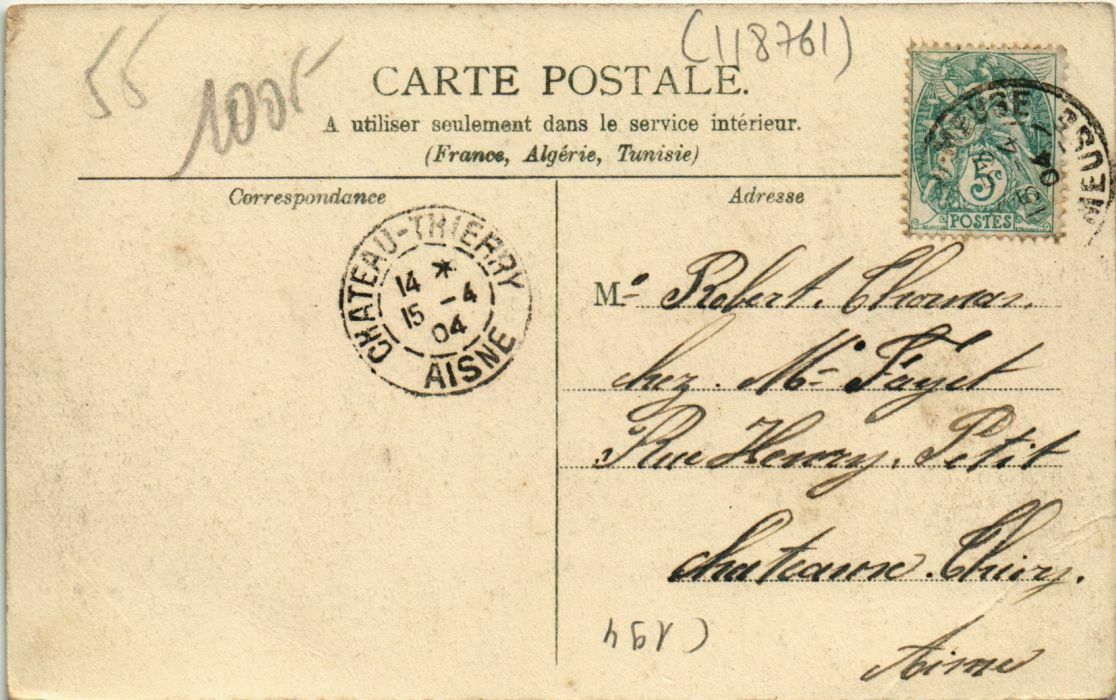 55
100F
(118761)
CARTE POSTALE.
A utiliser seulement dans le service intérieur.
(France, Algérie, Tunisie)
Correspondance
Adresse
5
POSTES
MEUSE
04
CHATEAU-THIERRY
14 *
15 -4
04
AISNE
Mr Robert. Thomas.
chez. Mr Fayet
Rue Henry, Petit
chateaux. Thiery.
Aisne